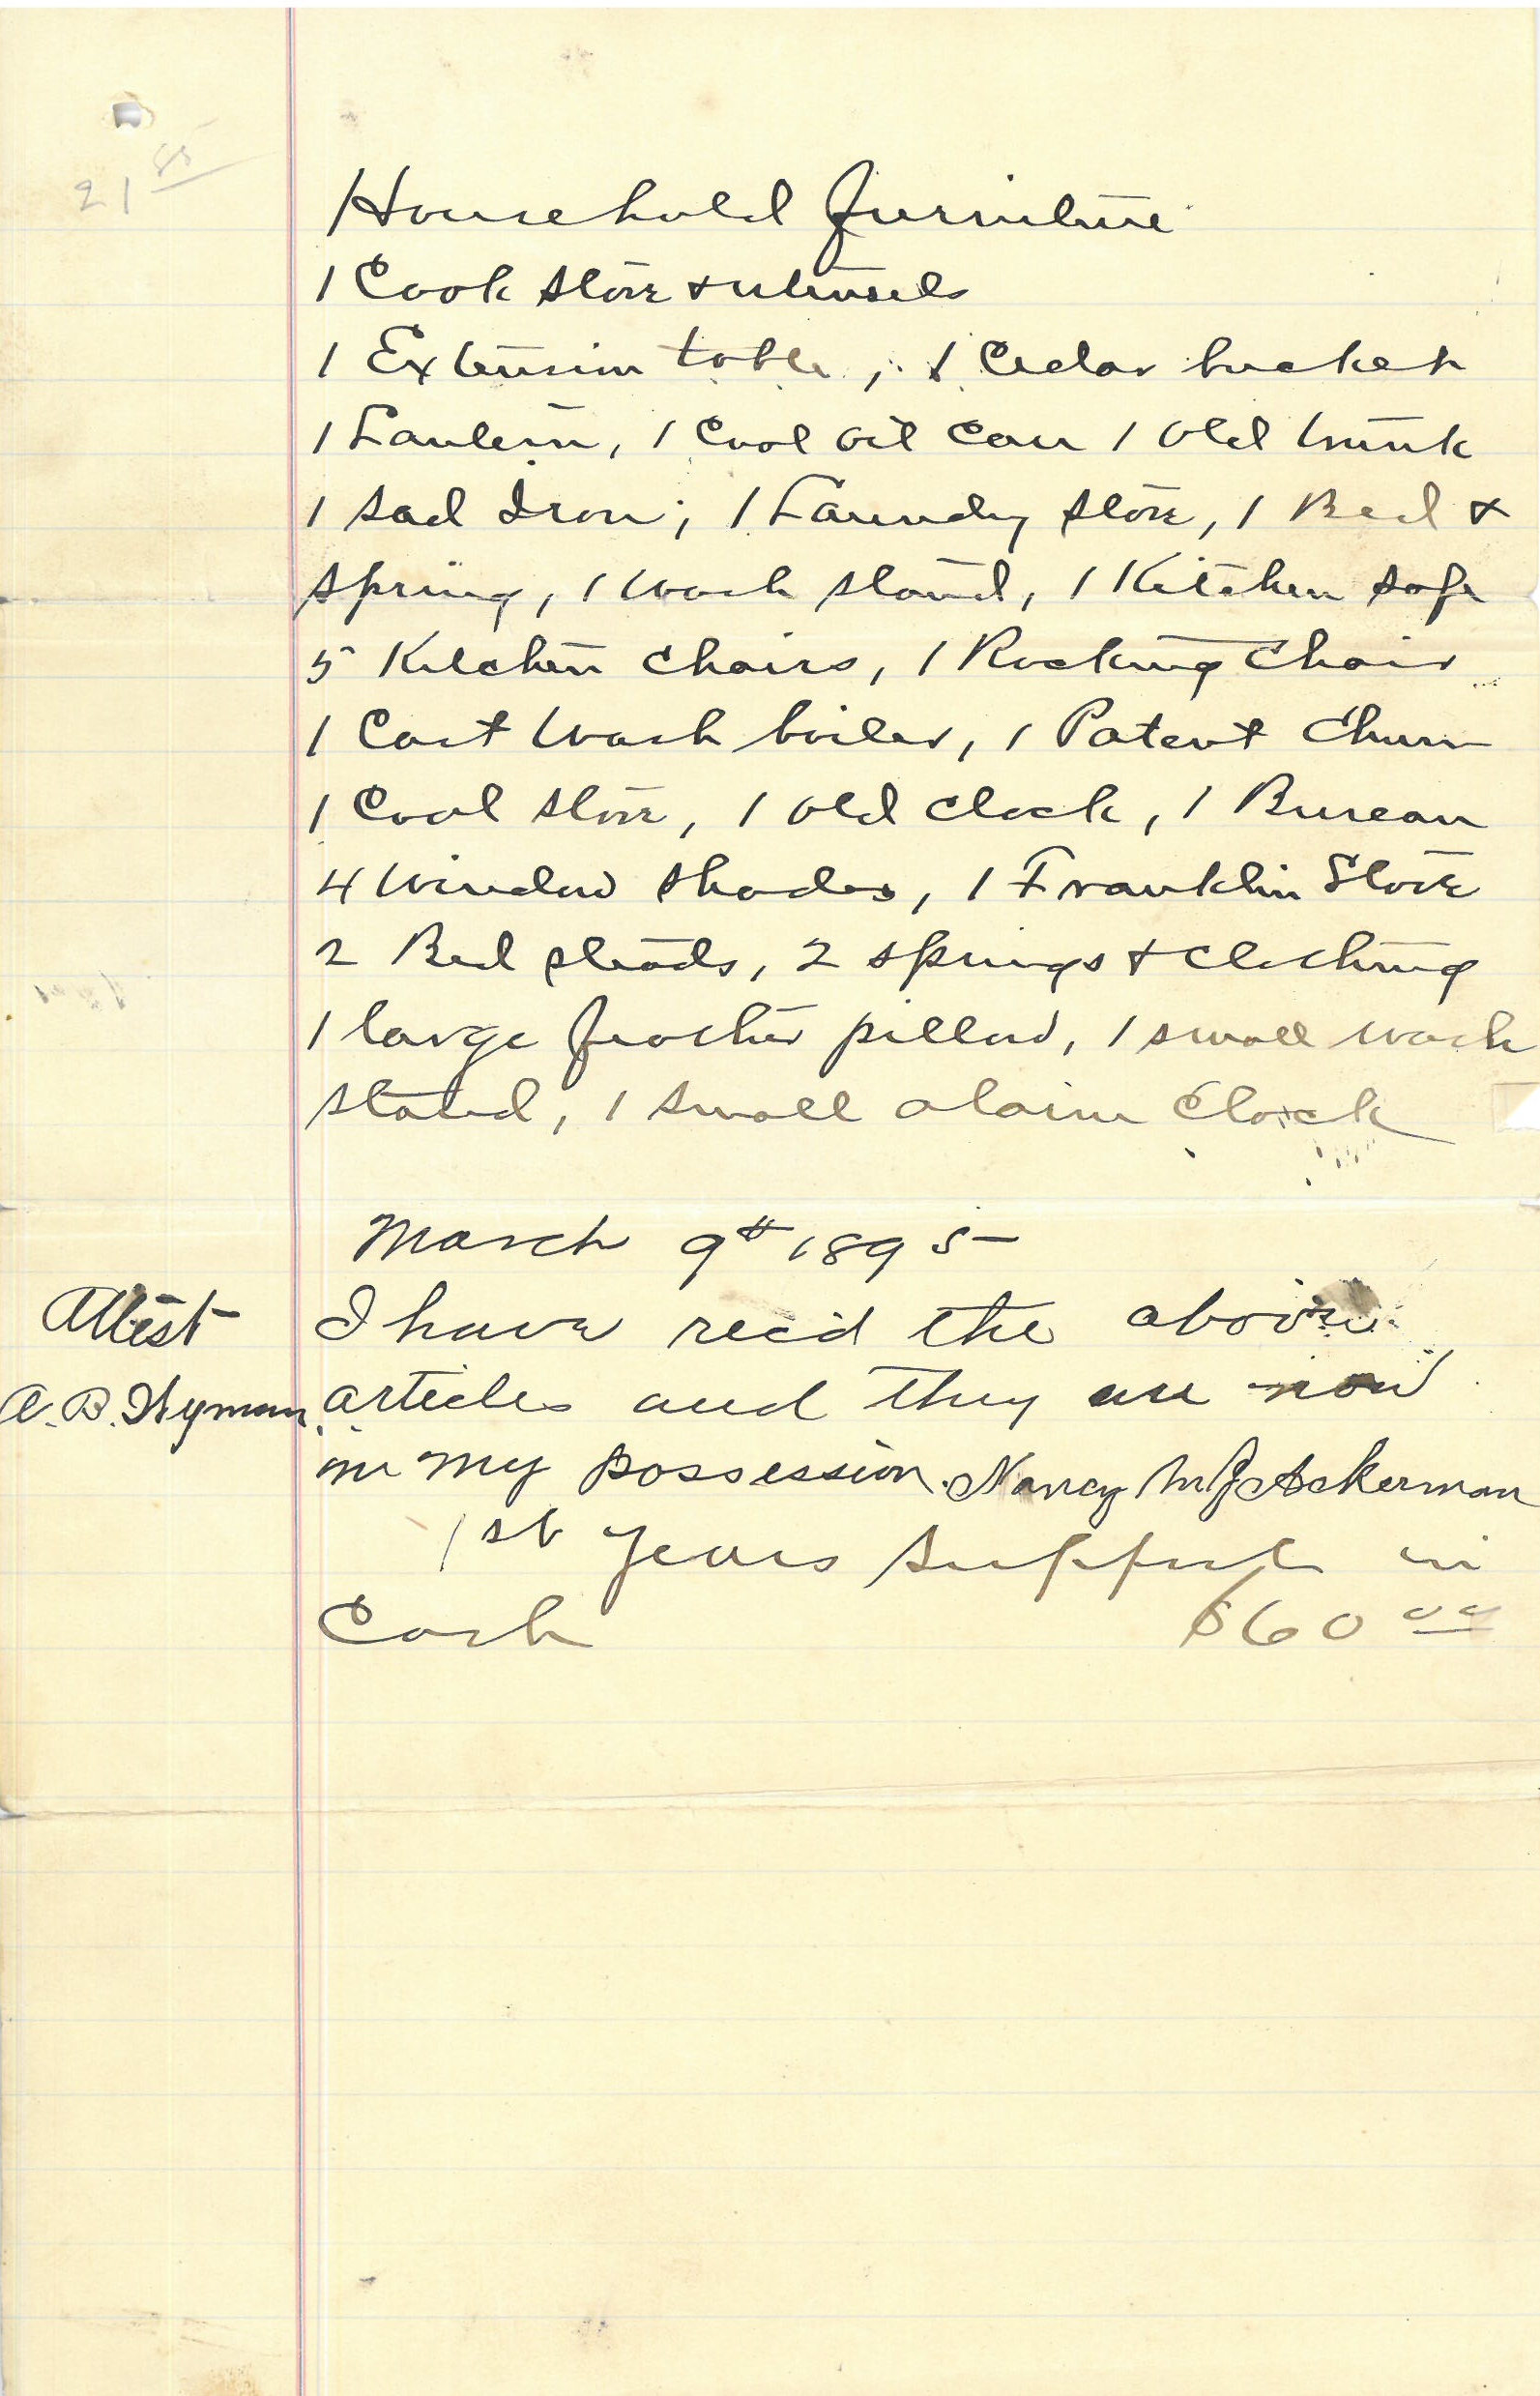 21 85
Household furniture
1 Cook stove & utensils
1 Extension table, 1 Cedar bucket
1 Lantern, 1 Coal oil can 1 old trunk
1 sad Iron, 1 Laundry stove, 1 Bed &
spring, 1 wash stand, 1 Kitchen safe
5 Kitchen chairs, 1 Rocking chair
1 Cast wash boiler, 1 Patent Churn
1 Coal stove, 1 old clock, 1 Bureau
4 window shades, 1 Franklin Stove
2 Bed steads, 2 springs & clothing
1 large feather pillow, 1 small wash
stand, 1 small alarm Clock
March 9th 1895
Attest I have rec'd the above
A. B. Wyman articles and they are now
in my possession. Nancy M J Ackerman
1st years support in
Cash $60 00